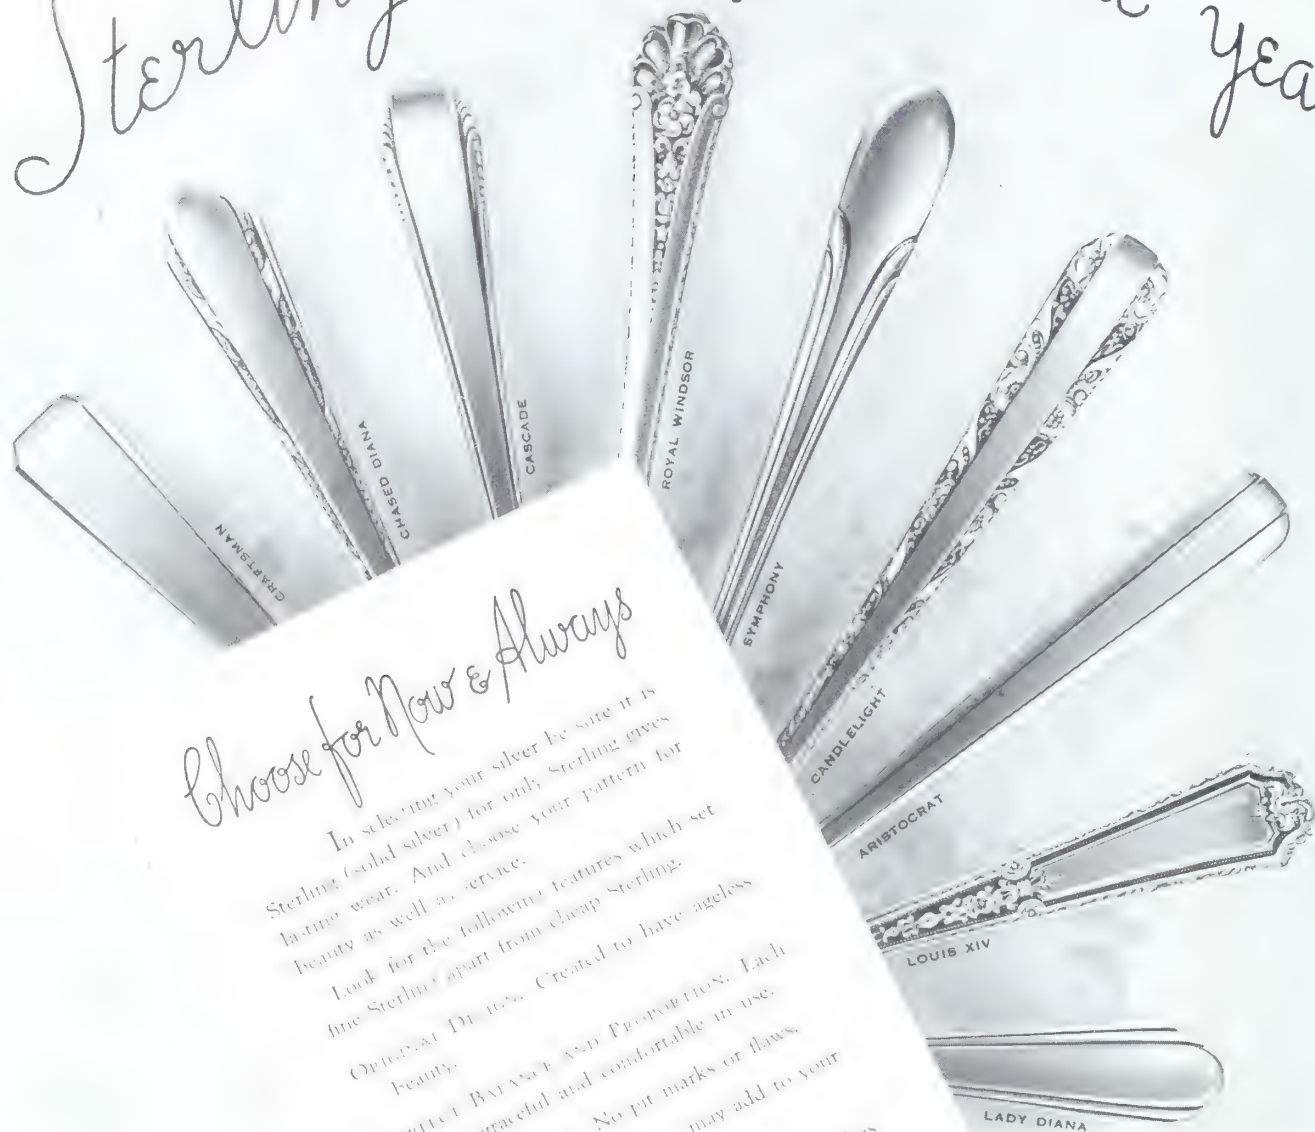 Sterling
CRAFTSMAN
CHASED DIANA
CASCADE
ROYAL WINDSOR
SYMPHONY
CANDLELIGHT
ARISTOCRAT
LOUIS XIV
LADY DIANA
Choose for Now & Always
In selecting your silver be sure it is
Sterling (solid silver) for only Sterling gives
lasting wear. And choose your pattern for
beauty as well as service.
Look for the following features which set
fine Sterling apart from cheap Sterling.
ORIGINAL DESIGNS. Created to have ageless
beauty.
BALANCE AND PROPORTION. Each
graceful and comfortable in use.
No pit marks or flaws.
may add to your